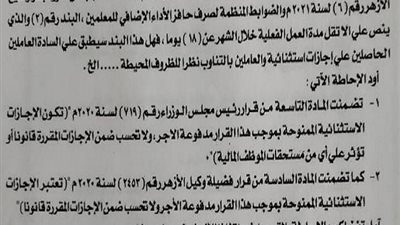 الأزهر رقم (٦) لسنة ٢٠٢١م والضوابط المنظمة لصرف حافز الأداء الإضافي للمعلمين، البند رقم (٢) والذي
ينص علي ألا تقل مدة العمل الفعلية خلال الشهر عن (١٨) يوما، فهل هذا البند سيطبق علي السادة العاملين
الحاصلين علي إجازات استثنائية والعاملين بالتناوب نظرا للظروف المحيطة ..... الخ.
أود الإحاطة الآتي:
١- تضمنت المادة التاسعة من قرار رئيس مجلس الوزراء رقم (٧١٩) لسنة ٢٠٢٠م "(تكون الإجازات
الاستثنائية الممنوحة بموجب هذا القرار مدفوعة الأجر، ولا تحسب ضمن الإجازات المقررة قانونا أو
تؤثر علي أي من مستحقات الموظف المالية)".
٢- كما تضمنت المادة السادسة من قرار فضيلة وكيل الأزهر رقم (٢٤٥٣) لسنة ٢٠٢٠م "(تعتبر الإجازات
الاستثنائية الممنوحة بموجب هذا القرار مدفوعة الأجر ولا تحسب ضمن الإجازات المقررة قانونا)"